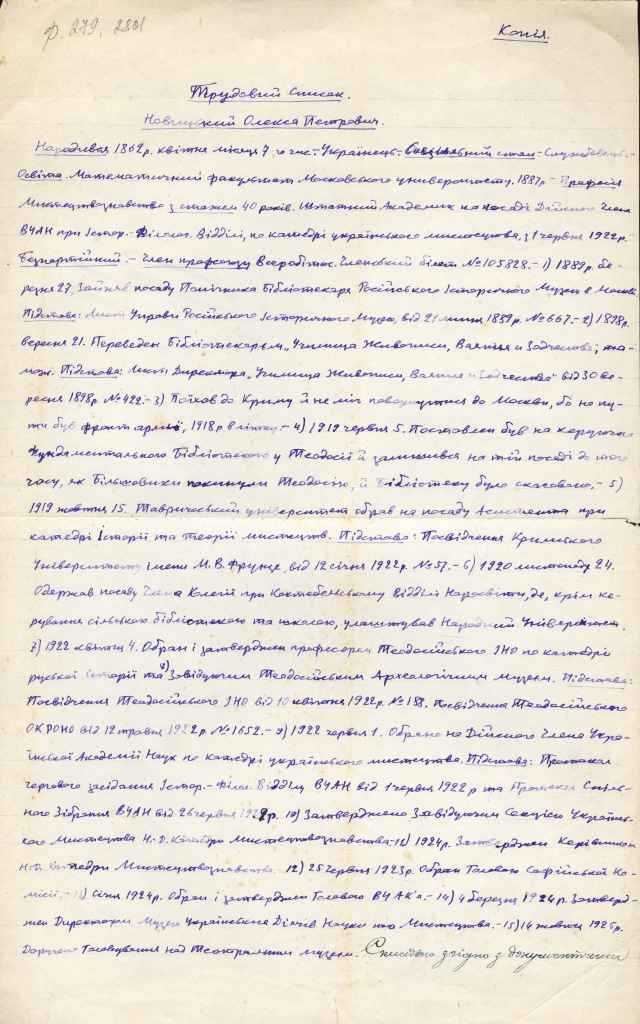 ф. 279, 2801
Копія.
Трудовий список.
Новицький Олекса Петрович.
Народився 1862 р. квітня місяця 7 го числ.- Українець.- Соціяльний стан.- Службовець.-
Освіта. Математичний факультет Московського університету. 1887 р.- Професія
Мистецтвознавство з стажем 40 років. Штатний Академик на посаді Дійсного Члена
ВУАН при Істор.-Філолог. Відділі, по катедрі українського мистецтва, з 1 червня 1922.-
Безпартійний.- Член профсоюзу Всеробітос. Членський білет № 105828.- 1) 1889 р. бе-
резня 27, Зайняв посаду Помічника Бібліотекаря Російського Історичного Музею в Москві.
Підстава: Лист Управи Російського Історичного Музею, від 21 липня 1889 р. № 667.- 2) 1898 р.
вересня 21. Переведен Бібліотекарем „Училища Живописи, Ваяния и Зодчества",
Підстава: Лист Директора „Училища Живописи, Ваяния и Зодчества" від 30 ве-
ресня 1898 р. № 422.- 3) Поїхав до Криму й не міг повернутися до Москви, бо на пу-
ти був фронт армії, 1918 р. влітку.- 4) 1919 червня 5. Поставлен був на керуючого
Фундаментального Бібліотекою у Теодосії й залишився на тій посаді до того
часу, як Більшовики покинули Теодосію, й Бібліотеку було скасовано.- 5)
1919 жовтня 15. Таврический університет обрав на посаду Асистента при
катедрі історії та теорії мистецтв. Підстава: Посвідчення Кримського
Університету імени М. В. Фрунзе, від 12 січня 1922 р. № 57.- 6) 1920 листопаду 24.
Одержав посаду Члена Колегії при Коктебельському Відділі Наросвіти, де, крім ке-
рування сільською бібліотекою та школою, улаштував Народній Університет.
7) 1922 квітня 4. Обран і затверджен професором Теодосійського ІНО по катедрі
руської історії та 8) Завідуючим Теодосійським Археологічним музеєм. Підстава:
Посвідчення Теодосійського ІНО від 10 квітня 1922 р. № 188. Посвідчення Теодосійського
ОКРОНО від 12 травня 1922 р. № 1652.- 9) 1922 червня 1. Обрано на Дійсного Члена Укра-
їнської Академії Наук по катедрі українського мистецтва. Підстава: Протокол
чергового засідання Істор.-Філол. Відділу ВУАН від 1 червня 1922 р та Протокол Спіль-
ного Зібрання ВУАН від 26 червня 1922 р. 10) Затверджено Завідуючим Секцією Українсь-
кого Мистецтва Н.-Д. Катедри Мистецтвознавства.- 11) 1924 р. Затверджен Керівником
Н.-Д. Катедри Мистецтвознавства.- 12) 25 червня 1923 р. Обран Головою Софійської Ко-
місії.- 13) Січня 1924 р. Обран і затверджен Головою ВУАК'а.- 14) 4 березня 1924 р. Затверд-
жен Директором Музею Українських Діячів Науки та Мистецтва.- 15) 14 жовтня 1926 р.
Доручено Головування над Театральним музеєм. Списано згідно з документами